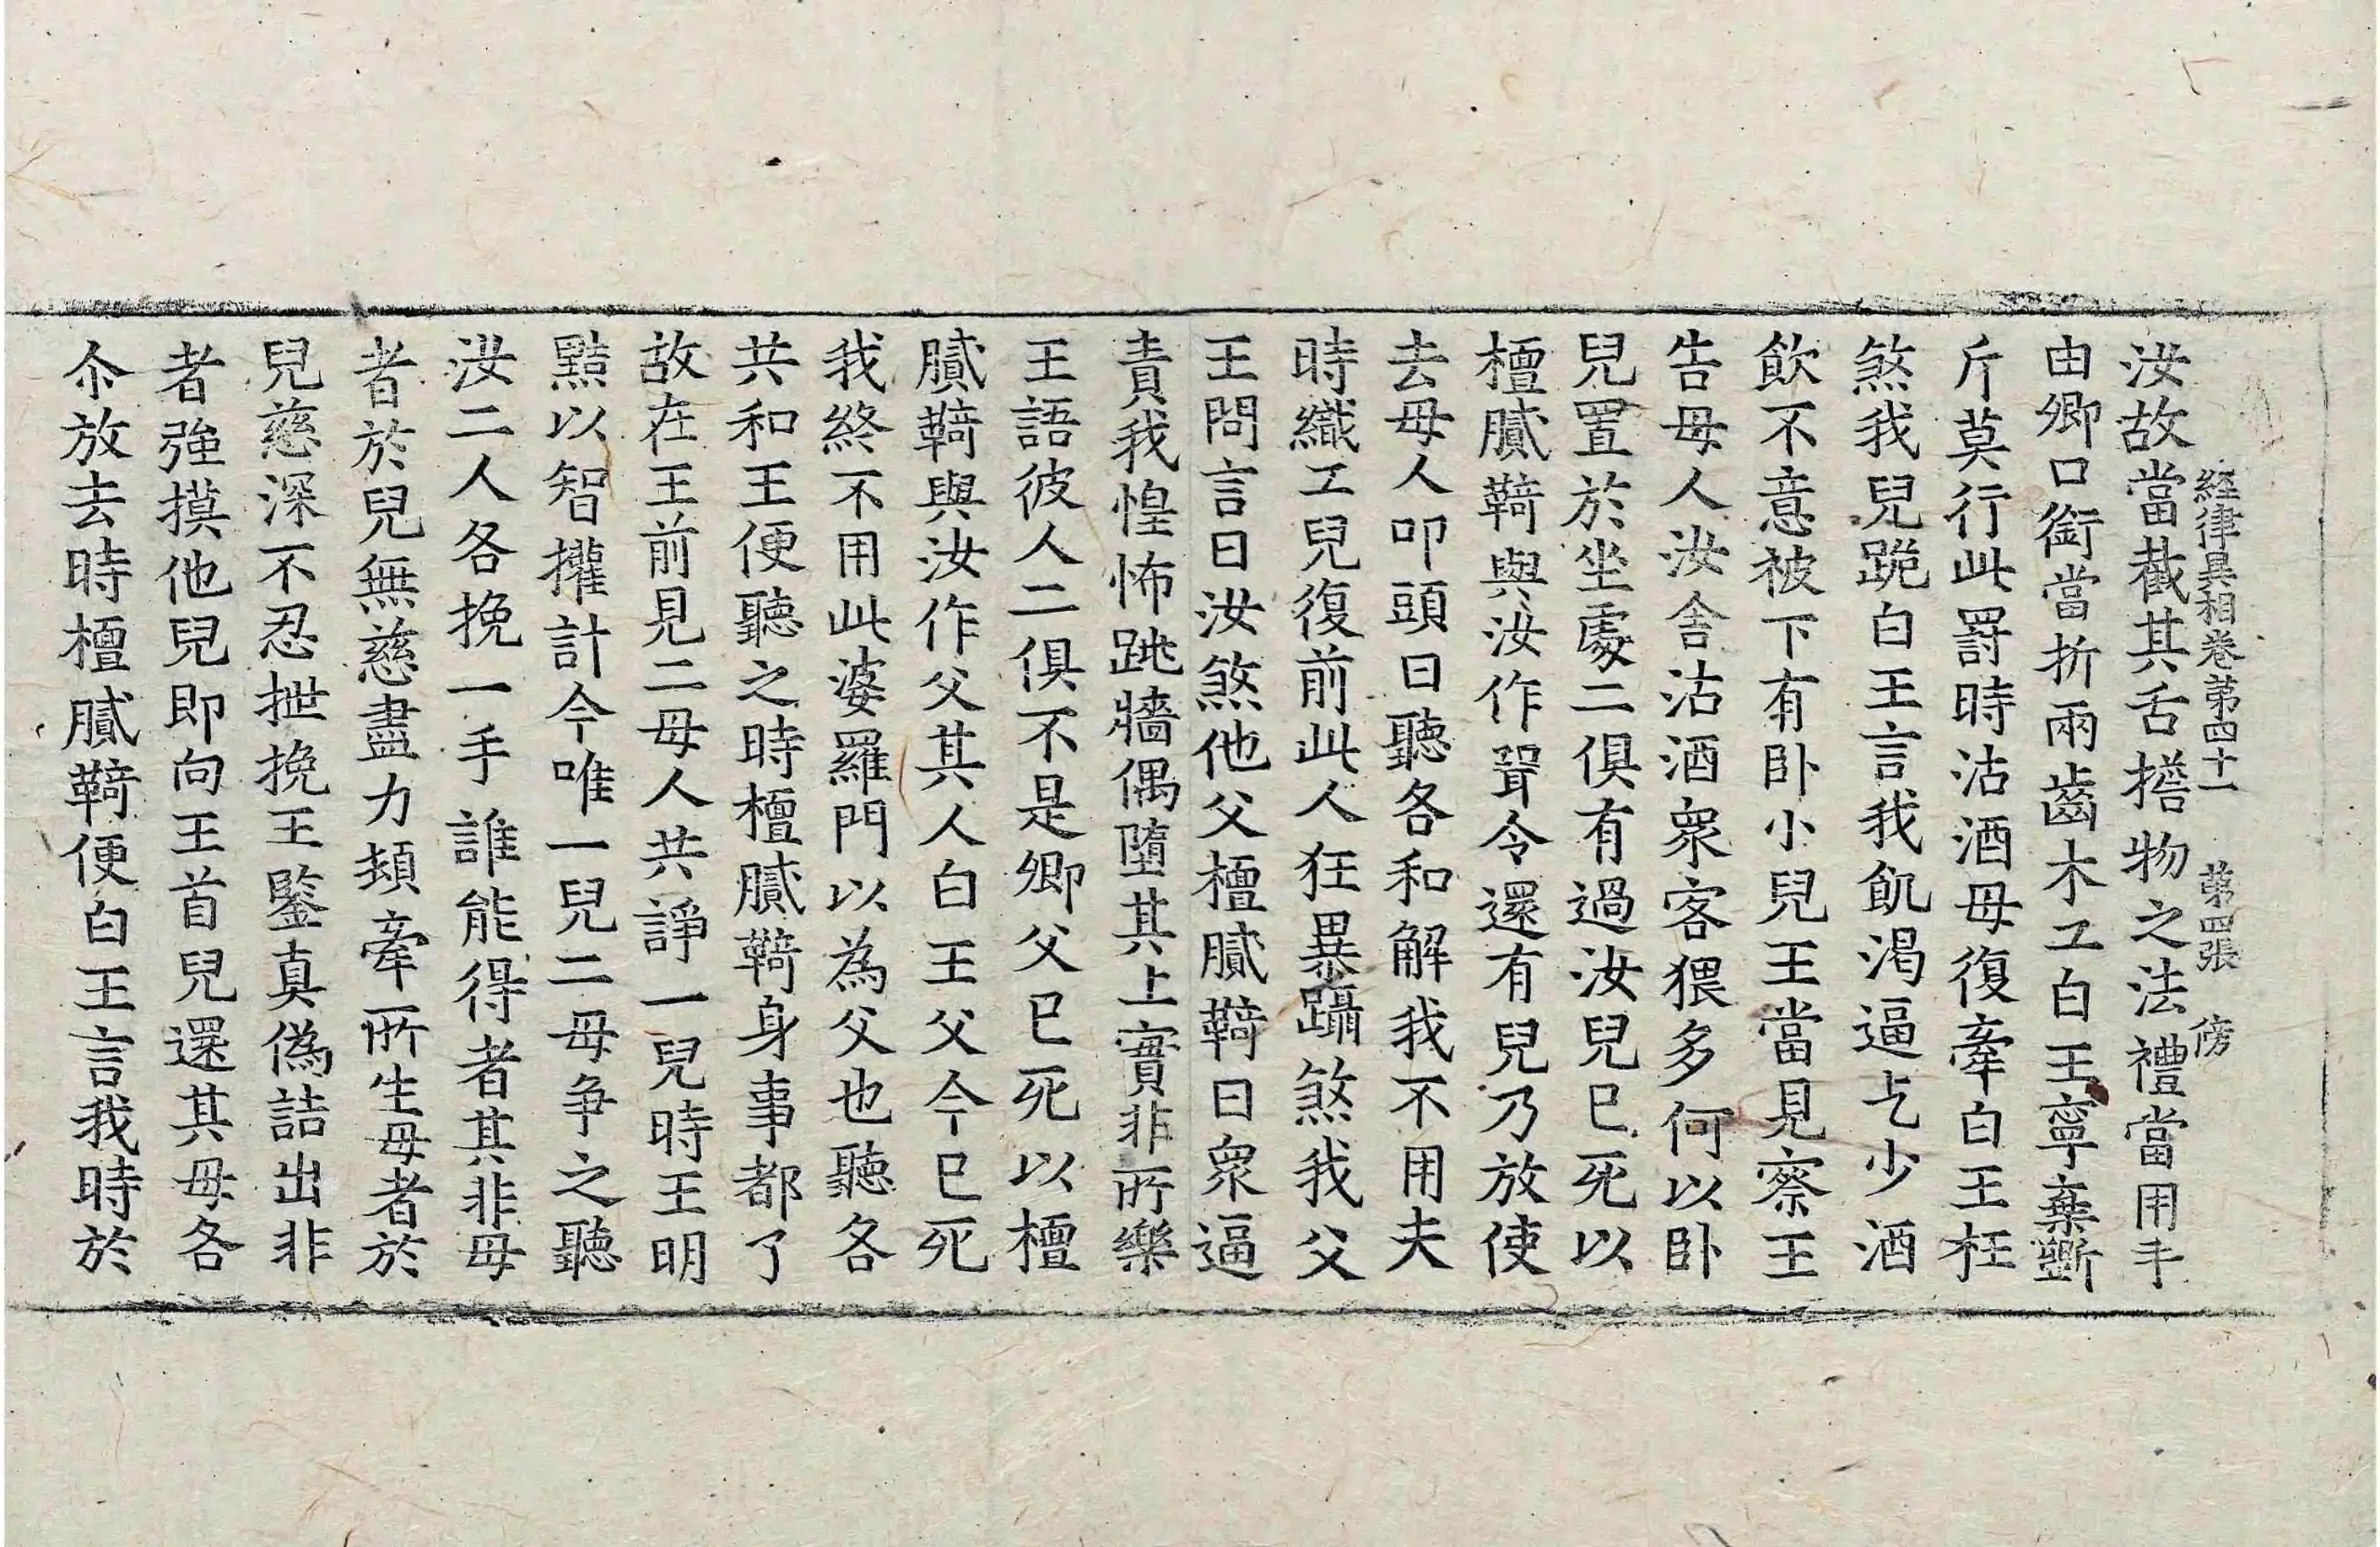 経律異相卷苐四十一　苐四張　傍
汝故當截其舌擔物之法禮當用手
由卿口銜當折兩齒木工白王寧棄斵
斤莫行此罸時沽酒母復牽白王枉
煞我兒跪白王言我飢渴逼乞少酒
飲不意被下有卧小兒王當見察王
告母人汝舍沽酒衆客猥多何以卧
兒置於坐處二俱有過汝兒已死以
檀膩䩭與汝作聟令還有兒乃放使
去母人叩頭曰聽各和解我不用夫
時織工兒復前此人狂暴躡煞我父
王問言曰汝煞他父檀膩䩭曰衆逼
責我惶怖跳牆偶墮其上實非所樂
王語彼人二俱不是卿父已死以檀
膩䩭與汝作父其人白王父今已死
我終不用此婆羅門以為父也聽各
共和王便聽之時檀膩䩭身事都了
故在王前見二母人共諍一兒時王明
黠以智㩲計今唯一兒二母争之聽
汝二人各挽一手誰能得者其非母
者於兒無慈盡力頓牽所生母者於
兒慈深不忍拽挽王鑒真偽詰出非
者強摸他兒即向王首兒還其母各
尒放去時檀膩䩭便白王言我時於